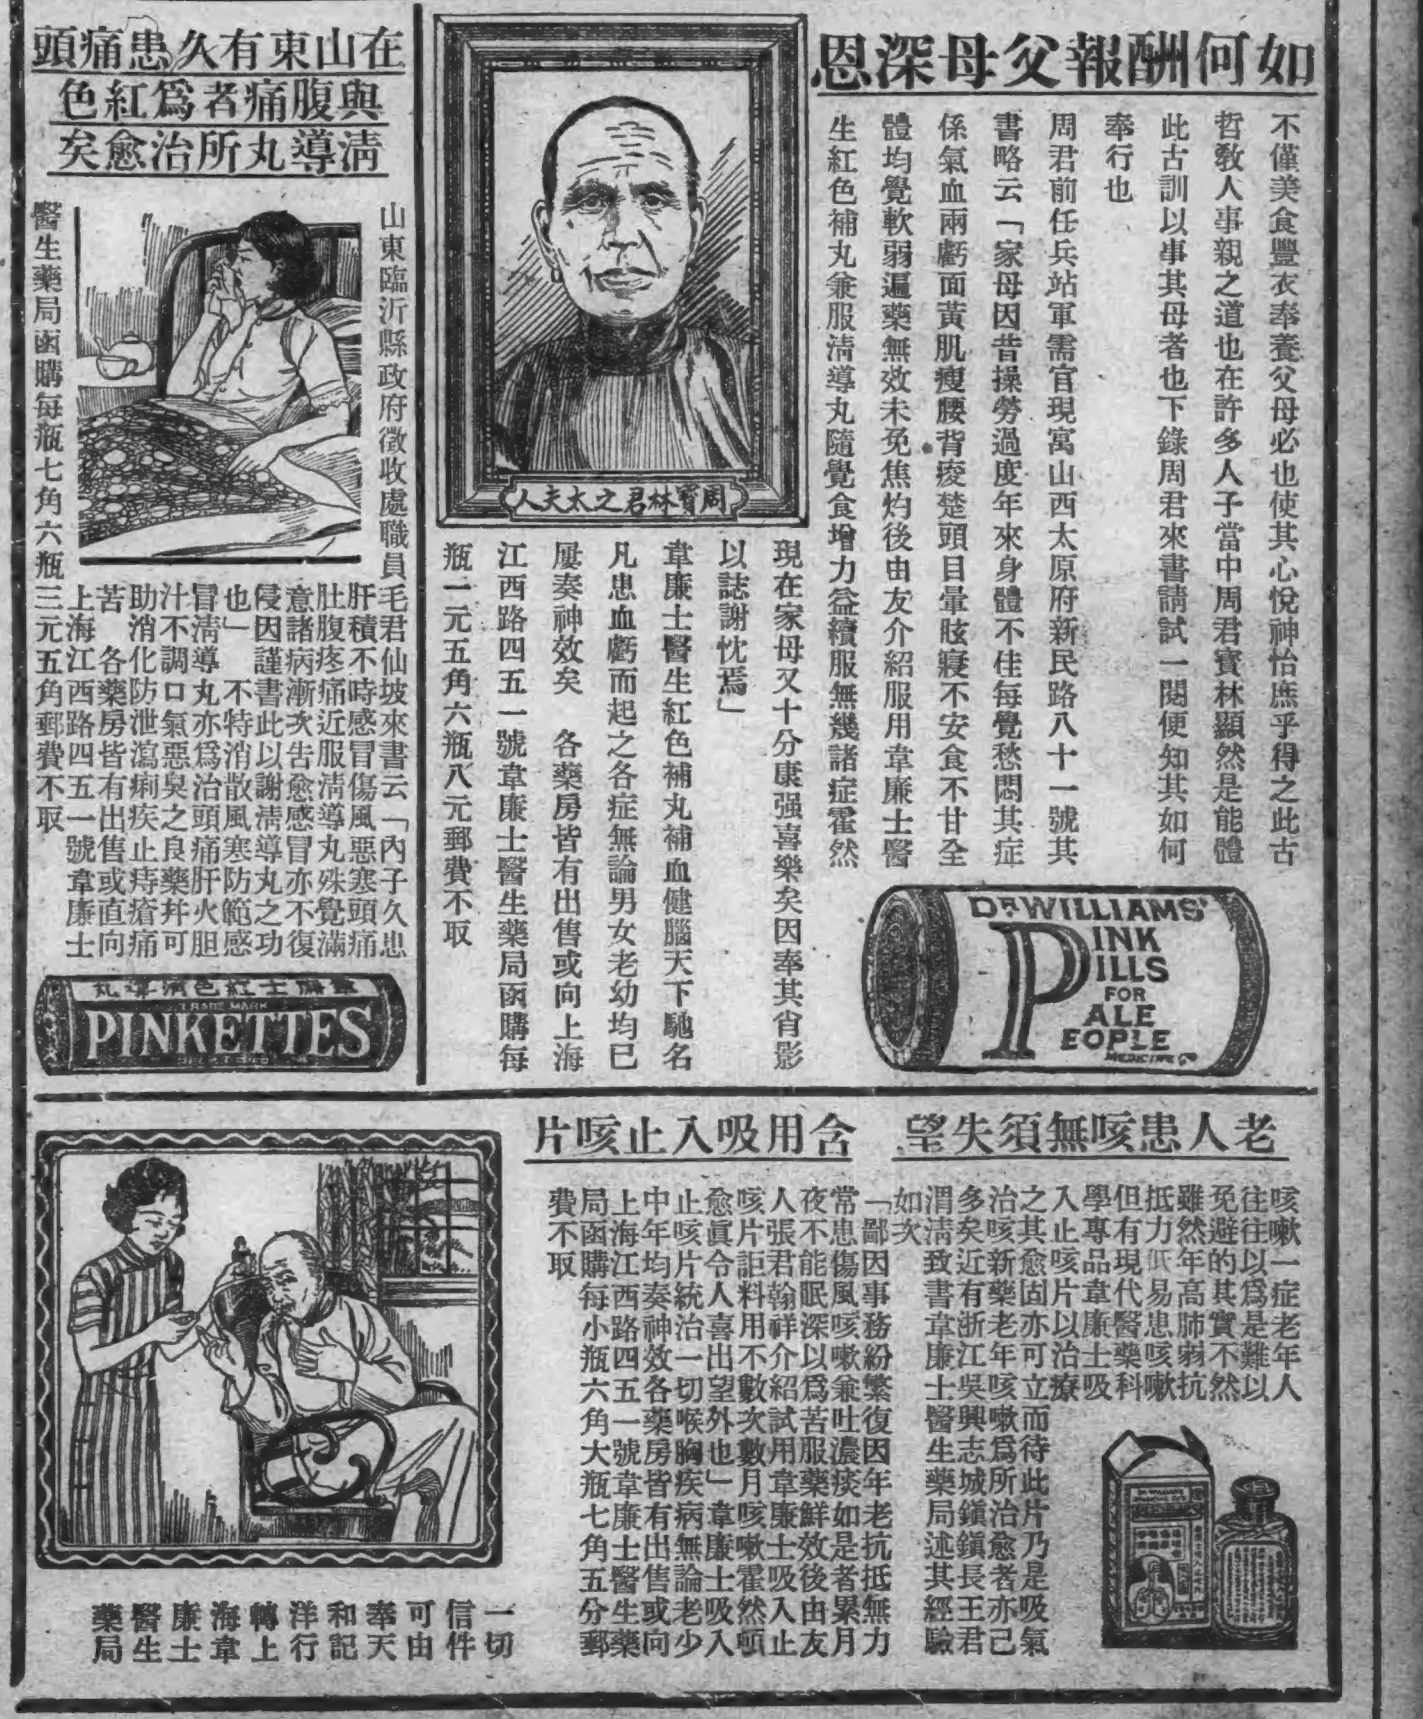 如何酬報父母深恩
不僅美食豐衣奉養父母必也使其心悅神怡庶乎得之此古
哲教人事親之道也在許多人子當中周君寶林顯然是能體
此古訓以事其母者也下錄周君來書請試一閱便知其如何
奉行也
周君前任兵站軍需官現寓山西太原府新民路八十一號其
書略云「家母因昔操勞過度年來身體不佳每覺愁悶其症
係氣血兩虧面黃肌瘦腰背痠楚頭目暈眩寢不安食不甘全
體均覺軟弱遍藥無效未免焦灼後由友介紹服用韋廉士醫
生紅色補丸兼服清導丸隨覺食增力益續服無幾諸症霍然
周寶林君之太夫人
現在家母又十分康强喜樂矣因奉其肖影
以誌謝忱焉」
韋廉士醫生紅色補丸補血健腦天下馳名
凡患血虧而起之各症無論男女老幼均已
屢奏神效矣　各藥房皆有出售或向上海
江西路四五一號韋廉士醫生藥局函購每
瓶一元五角六瓶八元郵費不取
DR. WILLIAMS'
PINK
PILLS
FOR
PALE
PEOPLE
MEDICINE Co
在山東有久患痛頭
與腹痛者爲紅色
清導丸所治愈矣
山東臨沂縣政府徵收處職員
毛君仙坡來書云「內子久患
肝積不時感冒傷風惡寒頭痛
肚腹疼痛近服清導丸殊覺滿
意諸病漸次告愈感冒亦不復
侵因謹書此以謝清導丸之功
也」　不特消散風寒防範感
冒清導丸亦爲治頭痛肝火胆
汁不調口氣惡臭之良藥幷可
助消化防泄瀉痢疾止痔瘡痛
苦　各藥房皆有出售或直向
上海江西路四五一號韋廉士
醫生藥局函購每瓶七角六瓶
三元五角郵費不取
韋廉士紅色清導丸
TRADE MARK
PINKETTES
老人患咳無須失望
含用吸入止咳片
咳嗽一症老年人
往往以爲是難以
免避的其實不然
雖然年高肺弱抗
抵力低易患咳嗽
但有現代醫藥科
學專品韋廉士吸
入止咳片以治療
之其愈固亦可立而待此片乃是吸氣
治咳新藥老年咳嗽爲所治愈者亦已
多矣近有浙江吳興志城鎮鎮長王君
渭清致書韋廉士醫生藥局述其經驗
如次
「鄙因事務紛繁復因年老抗抵無力
常患傷風咳嗽兼吐濃痰如是者累月
夜不能眠深以爲苦服藥鮮效後由友
人張君翰祥介紹試用韋廉士吸入止
咳片詎料用不數次數月咳嗽霍然頓
愈眞令人喜出望外也」韋廉士吸入
止咳片統治一切喉胸疾病無論老少
中年均奏神效各藥房皆有出售或向
上海江西路四五一號韋廉士醫生藥
局函購每小瓶六角大瓶七角五分郵
費不取
一切
信件
可由
奉天
和記
洋行
轉上
海韋
廉士
醫生
藥局